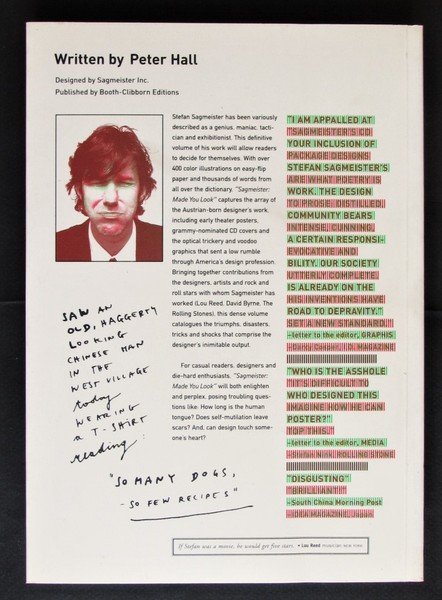 Written by Peter Hall
Designed by Sagmeister Inc.
Published by Booth-Clibborn Editions
Stefan Sagmeister has been variously
described as a genius, maniac, tacti-
cian and exhibitionist. This definitive
volume of his work will allow readers
to decide for themselves. With over
400 color illustrations on easy-flip
paper and thousands of words from
all over the dictionary, "Sagmeister:
Made You Look" captures the array of
the Austrian-born designer's work,
including early theater posters,
grammy-nominated CD covers and
the optical trickery and voodoo
graphics that sent a low rumble
through America's design profession.
Bringing together contributions from
the designers, artists and rock and
roll stars with whom Sagmeister has
worked (Lou Reed, David Byrne, The
Rolling Stones), this dense volume
catalogues the triumphs, disasters,
tricks and shocks that comprise the
designer's inimitable output.
For casual readers, designers and
die-hard enthusiasts, "Sagmeister:
Made You Look" will both enlighten
and perplex, posing troubling ques-
tions like. How long is the human
tongue? Does self-mutilation leave
scars? And, can design touch some-
one's heart?
"I AM APPALLED AT
"SAGMEISTER'S CD
YOUR INCLUSION OF
PACKAGE DESIGNS
STEFAN SAGMEISTER'S
ARE WHAT POETRY IS
WORK. THE DESIGN
TO PROSE: DISTILLED,
COMMUNITY BEARS
INTENSE, CUNNING,
A CERTAIN RESPONSI-
EVOCATIVE AND
BILITY. OUR SOCIETY
UTTERLY COMPLETE.
IS ALREADY ON THE
HIS INVENTIONS HAVE
ROAD TO DEPRAVITY."
SET A NEW STANDARD."
–letter to the editor, GRAPHIS
I.D. MAGAZINE
"WHO IS THE ASSHOLE
"IT'S DIFFICULT TO
WHO DESIGNED THIS
IMAGINE HOW HE CAN
POSTER?"
TOP THIS."
–letter to the editor, MEDIA
ROLLING STONE
"DISGUSTING"
"BRILLIANT!"
–South China Morning Post
–IDEA MAGAZINE, Japan
SAW AN
OLD, HAGGERTY
LOOKING
CHINESE MAN
IN THE
WEST VILLAGE
today
WEARING
a T-SHIRT
reading:
"SO MANY DOGS,
-SO FEW RECIPES"
If Stefan was a movie, he would get five stars. • Lou Reed MUSICIAN, NEW YORK